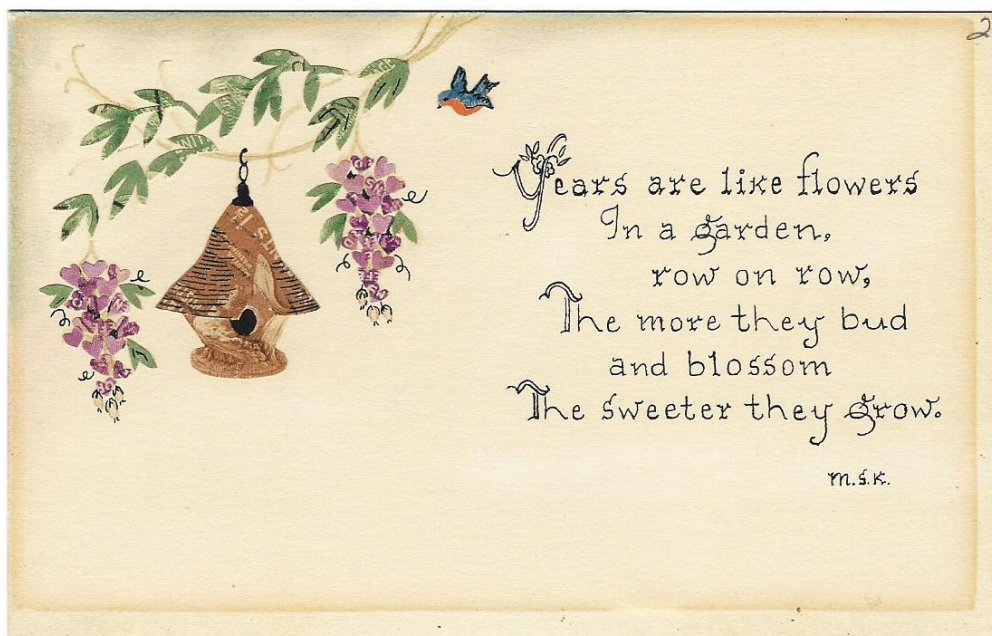 2
Years are like flowers
In a garden,
row on row,
The more they bud
and blossom
The sweeter they grow.
M.S.K.